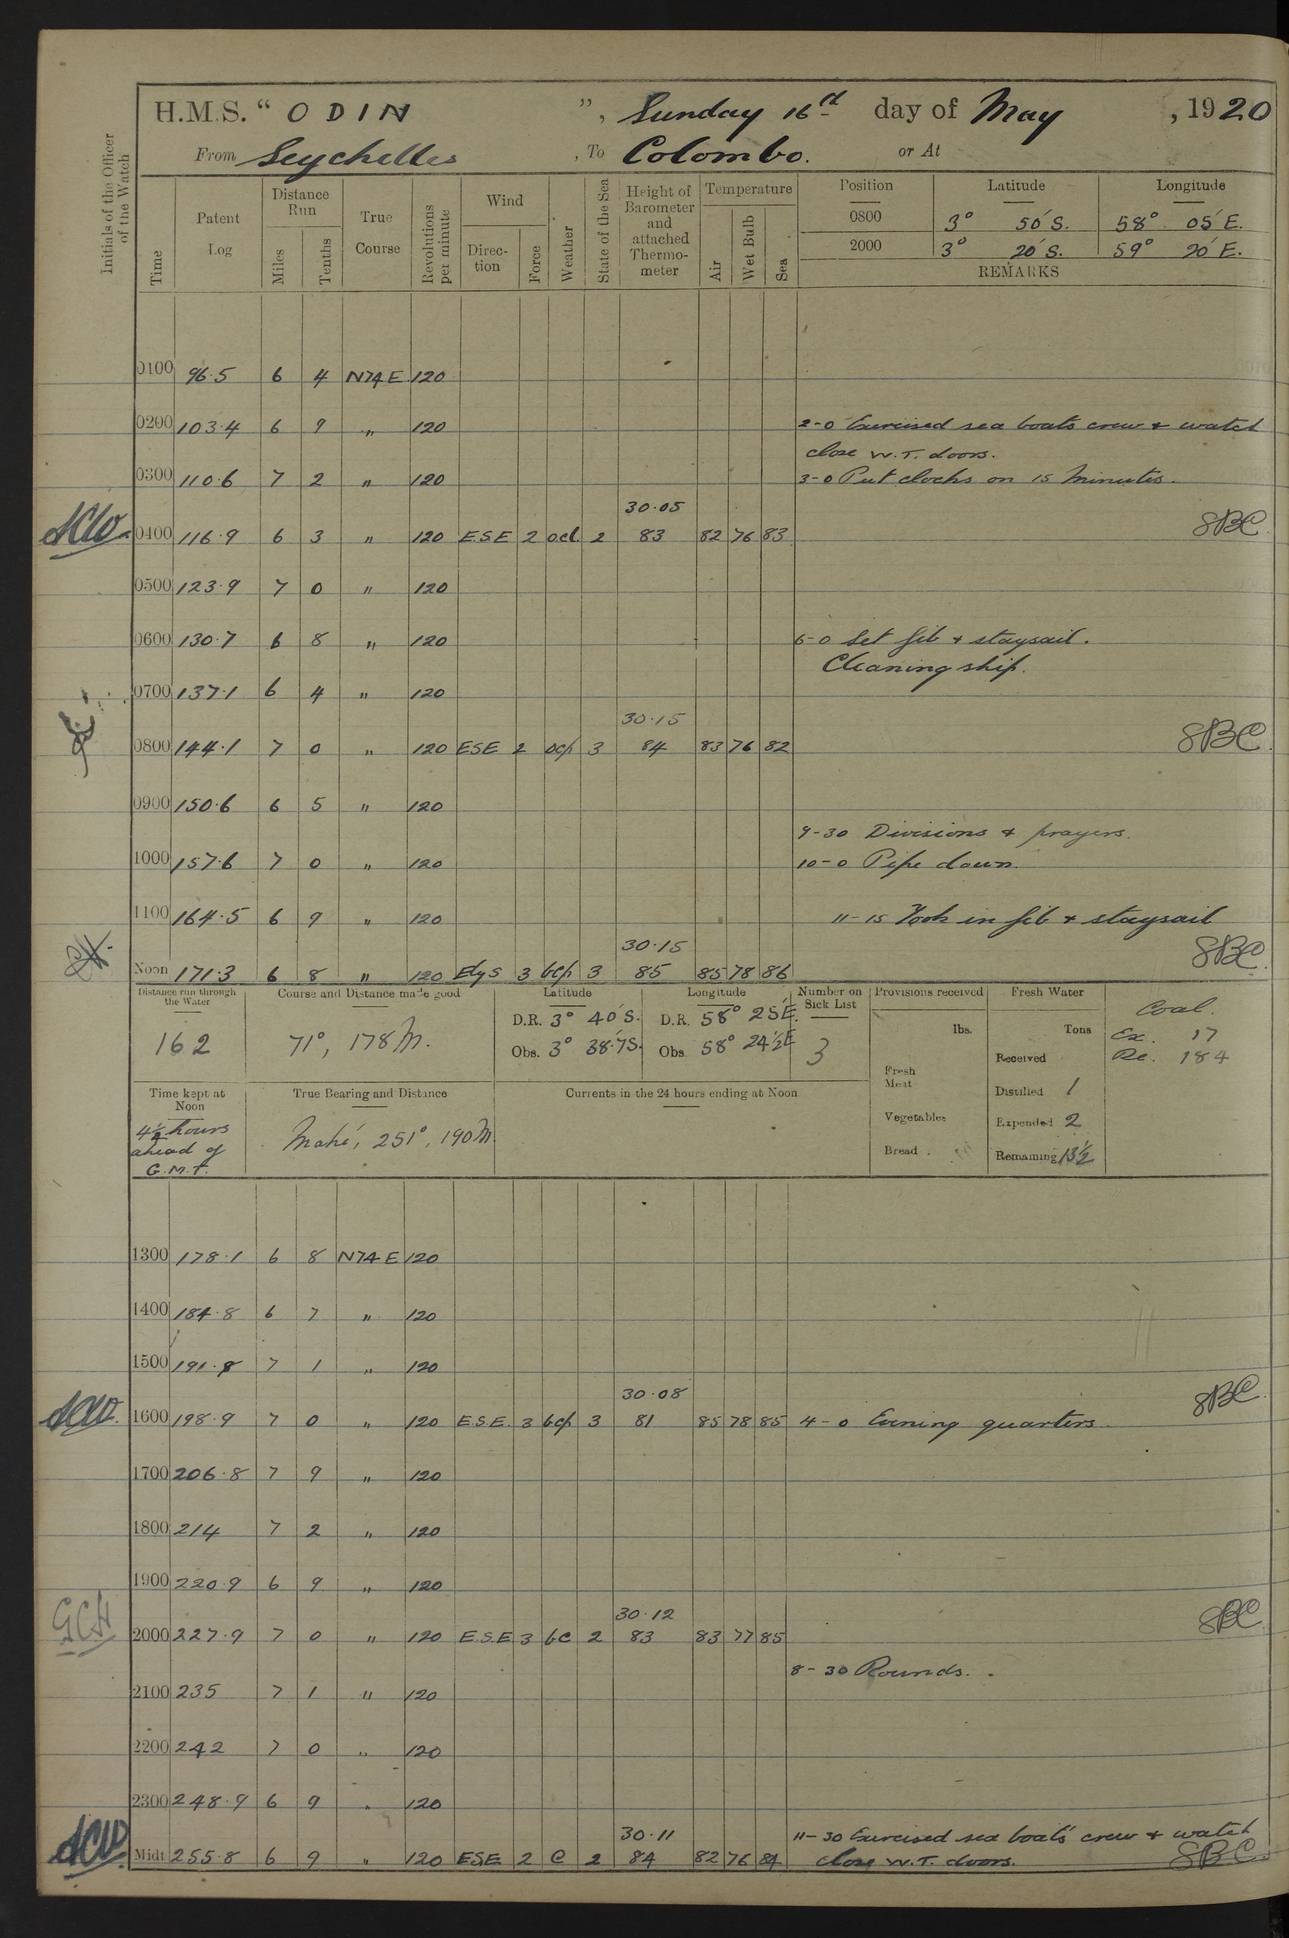 H.M.S. “ ODIN ”, Sunday 16th day of May , 1920
From Seychelles , To Colombo. or At
Initials of the Officer of the Watch
Time
Patent Log
Distance Run
Miles
Tenths
True Course
Revolutions per minute
Wind
Direction
Force
Weather
State of the Sea
Height of Barometer and attached Thermometer
Temperature
Air
Wet Bulb
Sea
Position Latitude Longitude
0800 3° 50' S. 58° 05' E.
2000 3° 20' S. 59° 20' E.
REMARKS
0100 96.5 6 4 N74E 120
0200 103.4 6 9 " 120 2-0 Exercised sea boats crew & watch
close W.T. doors.
0300 110.6 7 2 " 120 3-0 Put clocks on 15 Minutes.
30.05
0400 116.9 6 3 " 120 ESE 2 ocl 2 83 82 76 83 SBC
0500 123.9 7 0 " 120
0600 130.7 6 8 " 120 6-0 Set jib & staysail.
Cleaning ship.
0700 137.1 6 4 " 120
30.15
0800 144.1 7 0 " 120 ESE 2 ocp 3 84 83 76 82 SBC
0900 150.6 6 5 " 120
9-30 Divisions & prayers.
1000 157.6 7 0 " 120 10-0 Pipe down.
1100 164.5 6 9 " 120 11-15 Took in jib & staysail
30.15
Noon 171.3 6 8 " 120 Elys 3 bcp 3 85 85 78 86 SBC
Distance run through the Water
162
Course and Distance made good
71°, 178 M.
Latitude
D.R. 3° 40' S.
Obs. 3° 38.7' S.
Longitude
D.R. 58° 25' E.
Obs. 58° 24½' E
Number on Sick List
3
Provisions received
lbs.
Fresh Meat
Vegetables
Bread
Fresh Water
Tons
Received
Distilled 1
Expended 2
Remaining 13½
Coal.
Ex. 17
Re. 184
Time kept at Noon
4½ hours
ahead of
G.M.T.
True Bearing and Distance
Mahé, 251°, 190 M.
Currents in the 24 hours ending at Noon
1300 178.1 6 8 N74E 120
1400 184.8 6 7 " 120
1500 191.9 7 1 " 120
30.08
1600 198.9 7 0 " 120 E.S.E. 3 bcp 3 81 85 78 85 4-0 Evening quarters. SBC
1700 206.8 7 9 " 120
1800 214 7 2 " 120
1900 220.9 6 9 " 120
30.12
GCH 2000 227.9 7 0 " 120 E.S.E 3 bc 2 83 83 77 85 SBC
8-30 Rounds.
2100 235 7 1 " 120
2200 242 7 0 " 120
2300 248.9 6 9 " 120
30.11 11-30 Exercised sea boats' crew & watch
Midt. 255.8 6 9 " 120 ESE 2 c 2 84 82 76 84 close W.T. doors. SBC